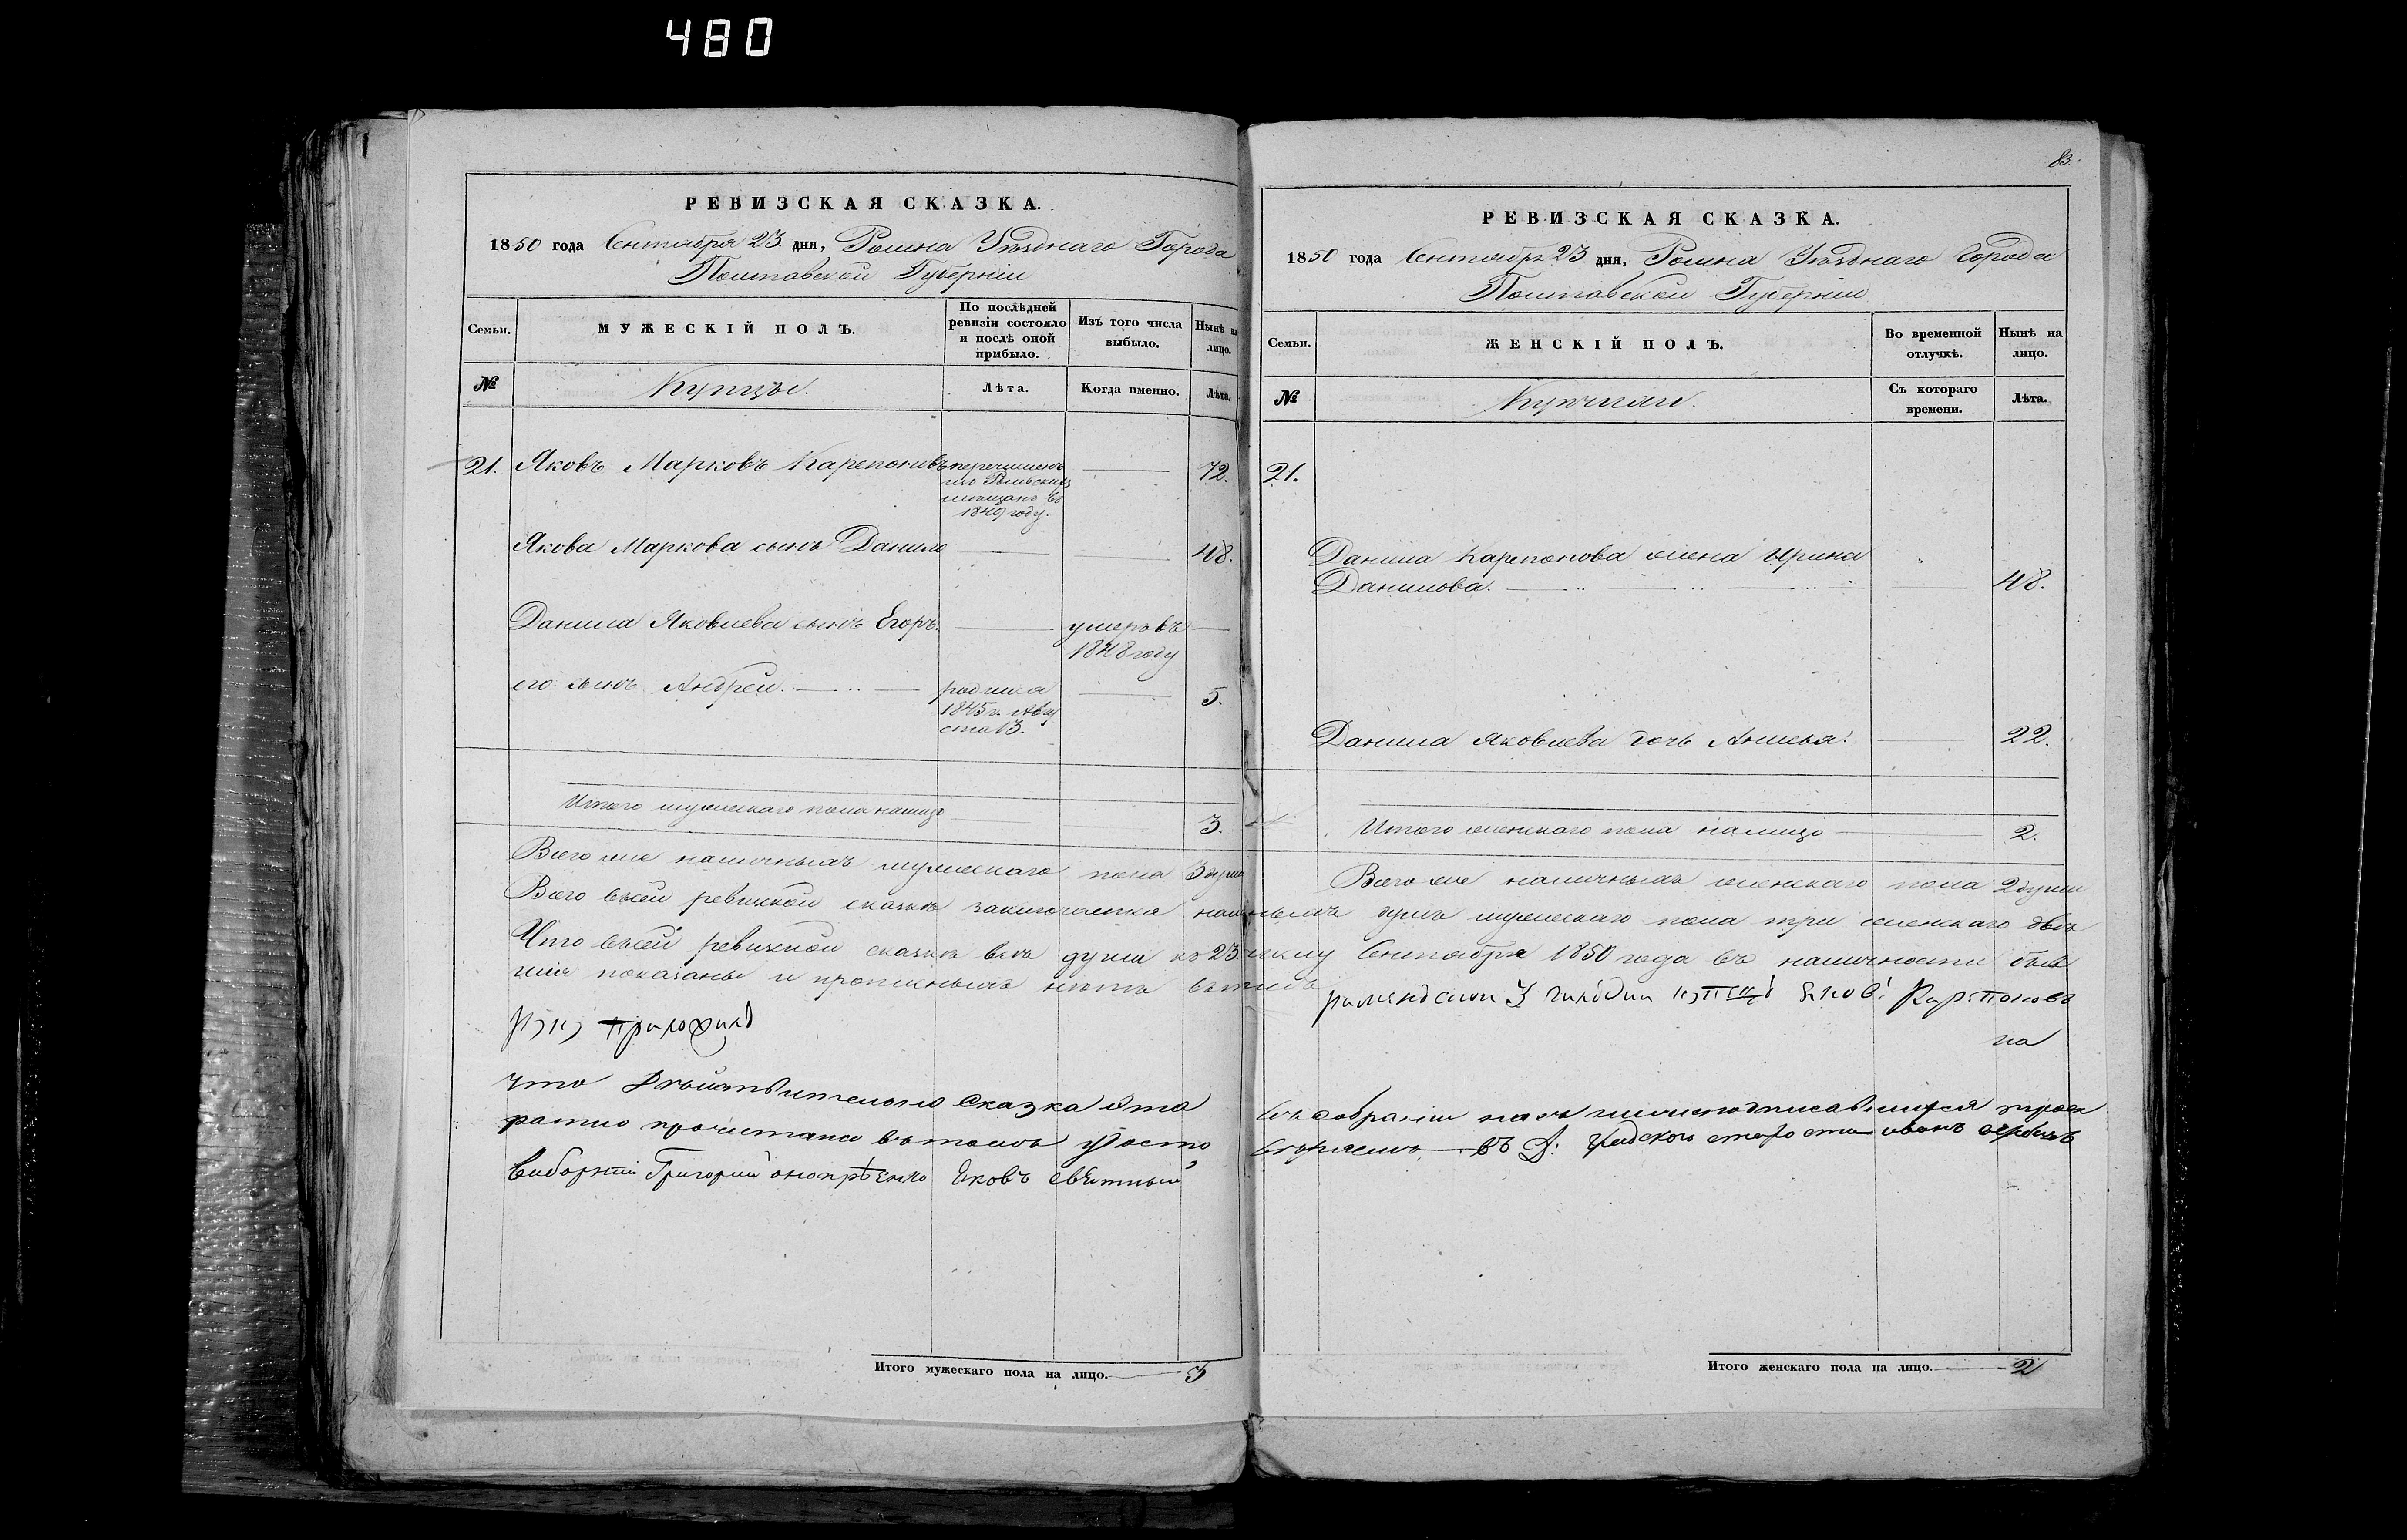 480
83.
РЕВИЗСКАЯ СКАЗКА.
1850 года Сентября 23 дня, Ромна Уѣзднаго Города
Полтавской Губерніи
Семьи.
МУЖЕСКІЙ ПОЛЪ.
По послѣдней ревизіи состояло и послѣ оной прибыло.
Изъ того числа выбыло.
Нынѣ на лицо.
№
Купцы.
Лѣта.
Когда именно.
Лѣта.
21. Яковъ Марковъ Карепоновъ перечисленъ 72.
изъ Рыльскихъ
мѣщанъ въ
1849 году.
Якова Маркова сынъ Данило 48.
Данила Яковлева сынъ Егоръ. умеръ въ
1848 году
его сынъ Андрей. родился 5.
1845 г. Авгу
ста 13.
Итого мужескаго пола налицо 3.
Всего же наличныхъ мужескаго пола 3 души
РЕВИЗСКАЯ СКАЗКА.
1850 года Сентября 23 дня, Ромна Уѣзднаго Города
Полтавской Губерніи
Семьи.
ЖЕНСКІЙ ПОЛЪ.
Во временной отлучкѣ.
Нынѣ на лицо.
№
Съ котораго времени.
Лѣта.
21.
Данила Карепонова жена Ирина
Данилова. 48.
Данила Яковлева дочь 22.
Итого женскаго пола налицо 2.
Всего же наличныхъ женскаго пола 2 души
Всего въ сей ревизской сказкѣ заключается наличныхъ душъ мужескаго пола три женскаго двѣ
Что въ сей ревизской сказкѣ всѣ души къ 23 числу Сентября 1850 года въ наличности
показаны и прописныхъ нѣтъ въ томъ 3 Карепоновъ
руку приложилъ
что Дѣйствительно сказка ета въ собраніи насъ
прочитана въ томъ
Виборній Григорий Яковъ староста иванъ
Итого мужескаго пола на лицо. 3
Итого женскаго пола на лицо. 2